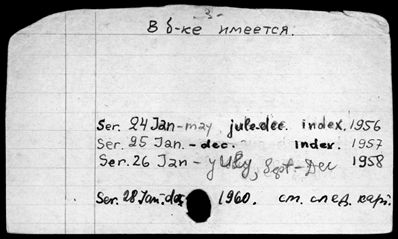 -3-
В б-ке имеется.
Ser. 24 Jan-may, jule-dec. index. 1956
Ser. 25 Jan. - dec. index. 1957
Ser. 26 Jan - July, Sept-Dec 1958
Ser. 28 Jan-dec 1960. см. след. карт.